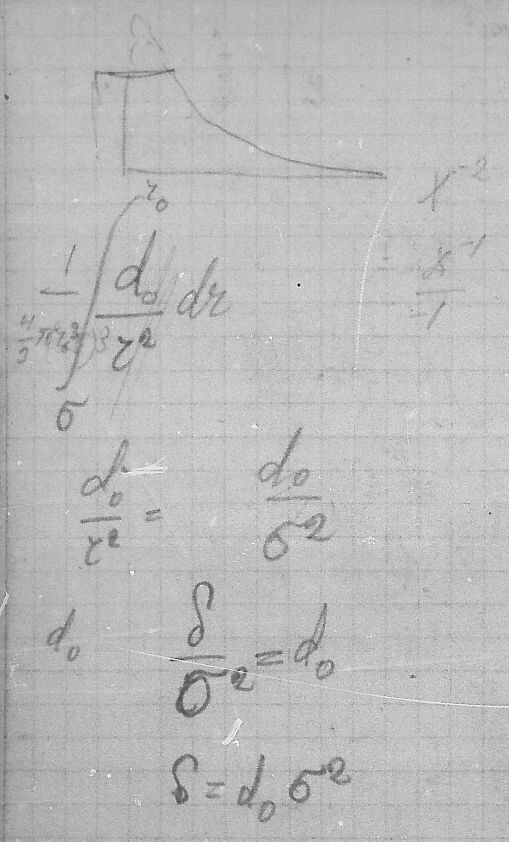 x⁻²
r₀
1/(4/3 π(r₀³)3) ∫ d₀/r² dr
x⁻¹/-1
σ
d₀/r² = d₀/σ²
d₀ δ/σ² = d₀
δ = d₀ σ²